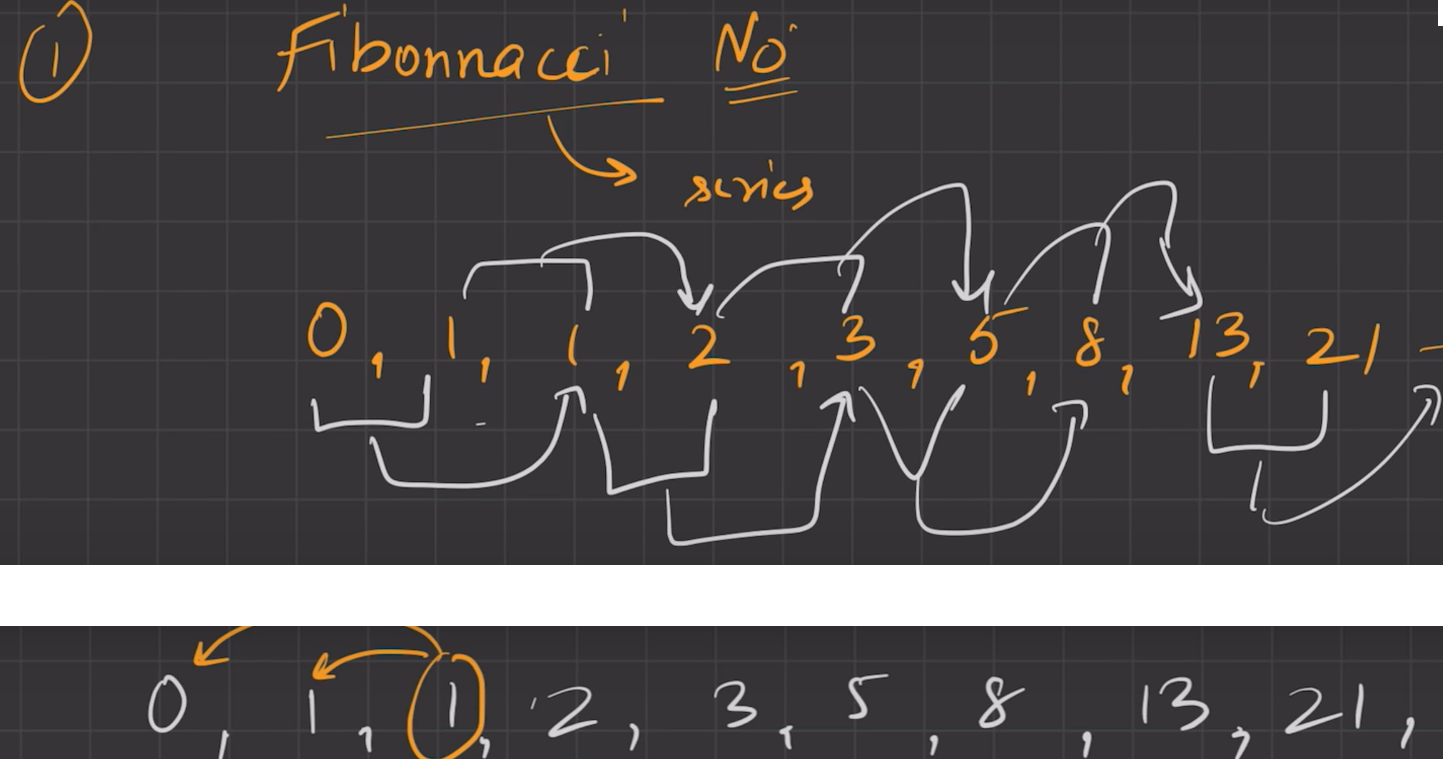 ① Fibonnacci No
series
0, 1, 1, 2, 3, 5, 8, 13, 21 -
0, 1, 1, 2, 3, 5, 8, 13, 21,